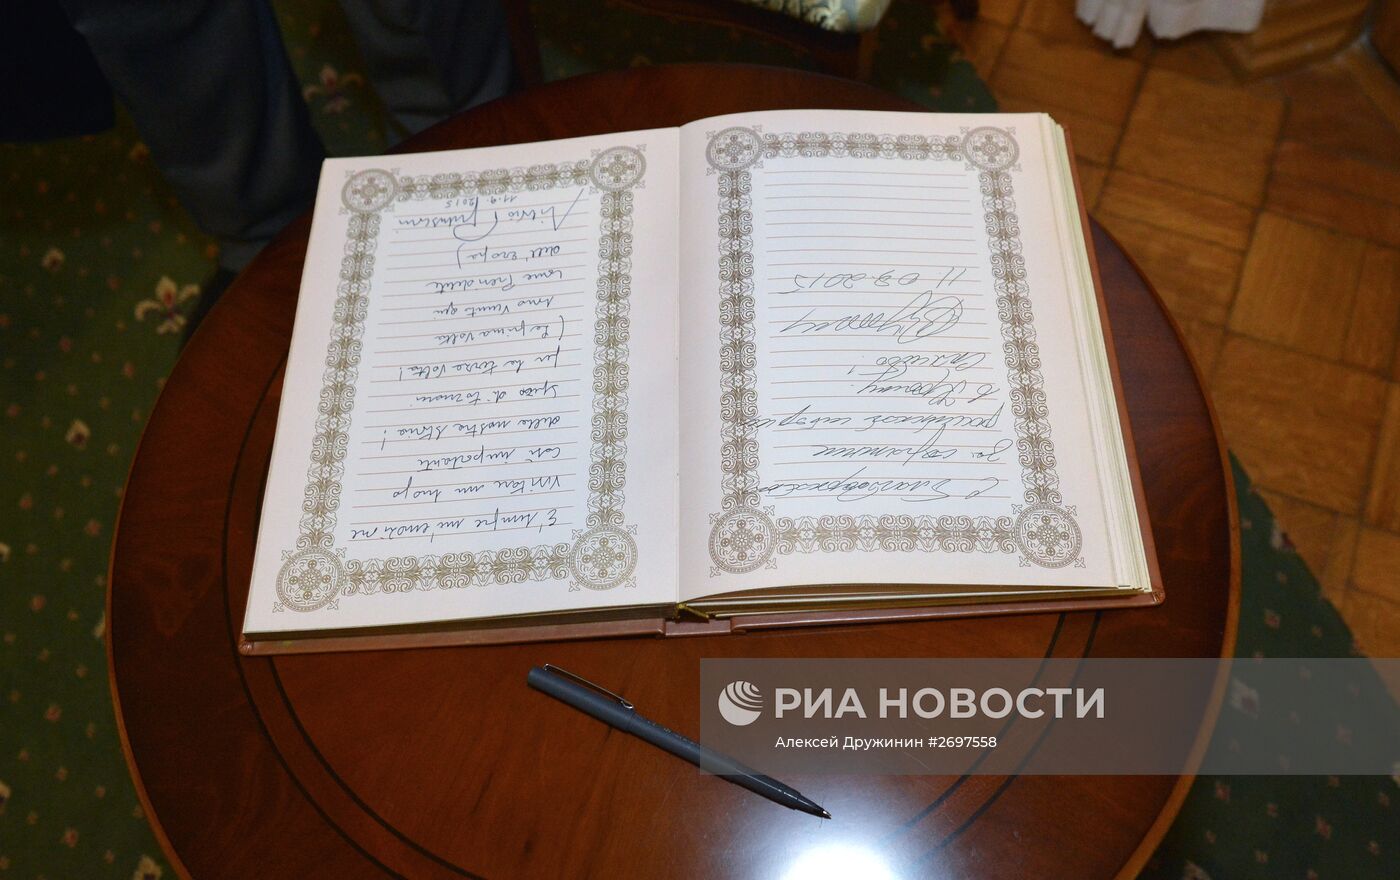 С благодарностью
за сохранение
российской истории
в Крыму.
Спасибо!
11.09.2015
È sempre un'emozione
visitare un luogo
così importante
della nostra storia!
Spero di tornarci
per la terza volta!
(La prima volta
sono venuto qui
come Presidente
dell'Europa)
Silvio Berlusconi
11.9.2015
РИА НОВОСТИ
Алексей Дружинин #2697558